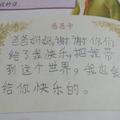 感恩卡
爸爸妈妈,谢谢你们
给了我快乐,把我带
到这个世界,我也会
给你快乐的。